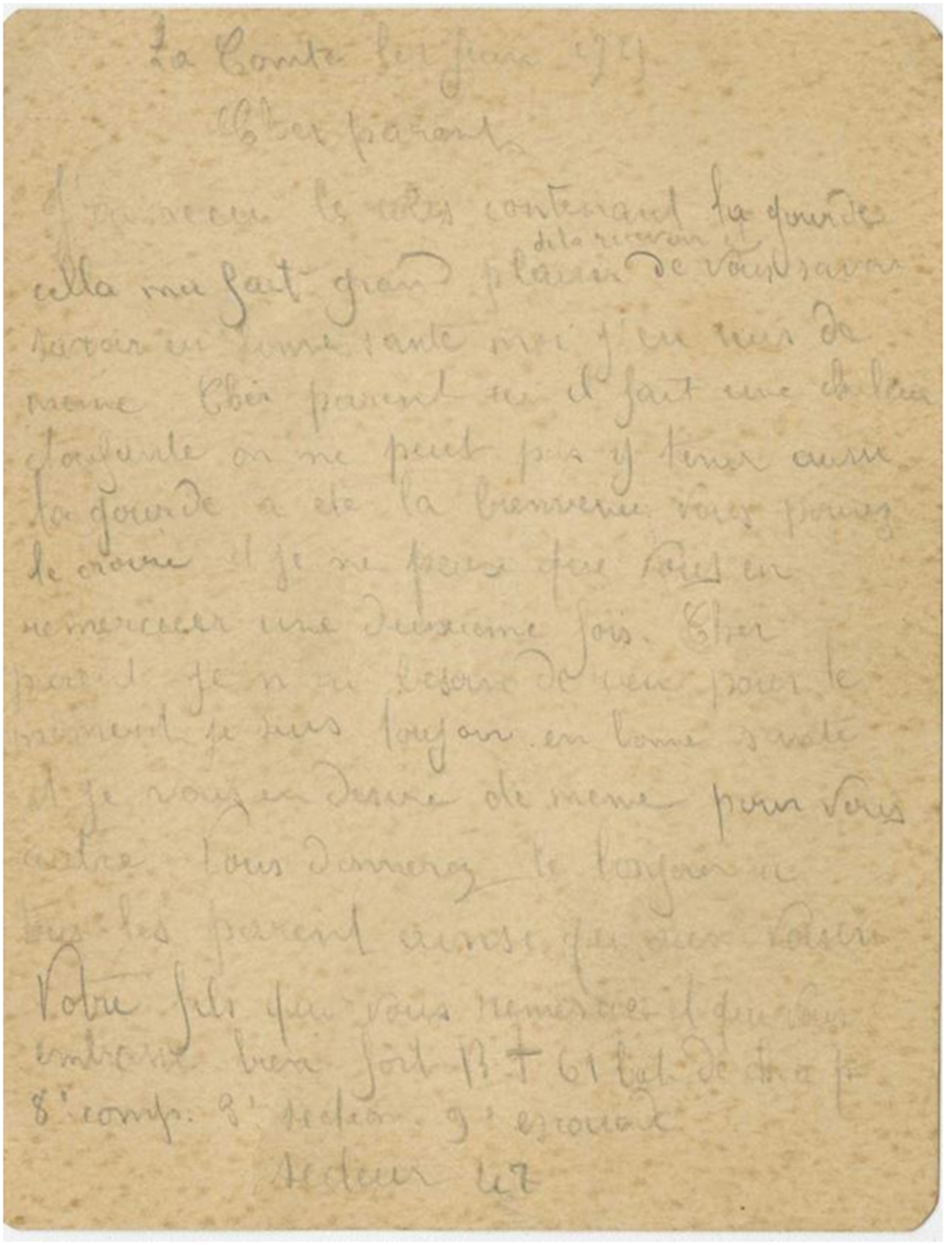 La Comté le 1er juin 1915
Cher parent
J'ai recu le colis contenant la gourde
de la recevoir et
cella ma fait grand plaisir de vous savoir
en bonne santé moi j'en suis de
meme Cher parent ici il fait une chaleur
étoufante on ne peut pas y tenir aussi
la gourde a eté la bienvenue vous pouvez
le croire et je ne peux que vous en
remercier une deuxieme fois. Cher
parent je n ai besoin de rien pour le
moment je suis toujour en bonne santé
et je vous en desire de meme pour vous
autre Vous donnerez le bonjour a
tous les parent ainsi qu aux voisin
Votre fils qui vous remercie et qui vous
embrasse bien fort B + 61 bat. de
8e comp. 9e escouade
secteur 47